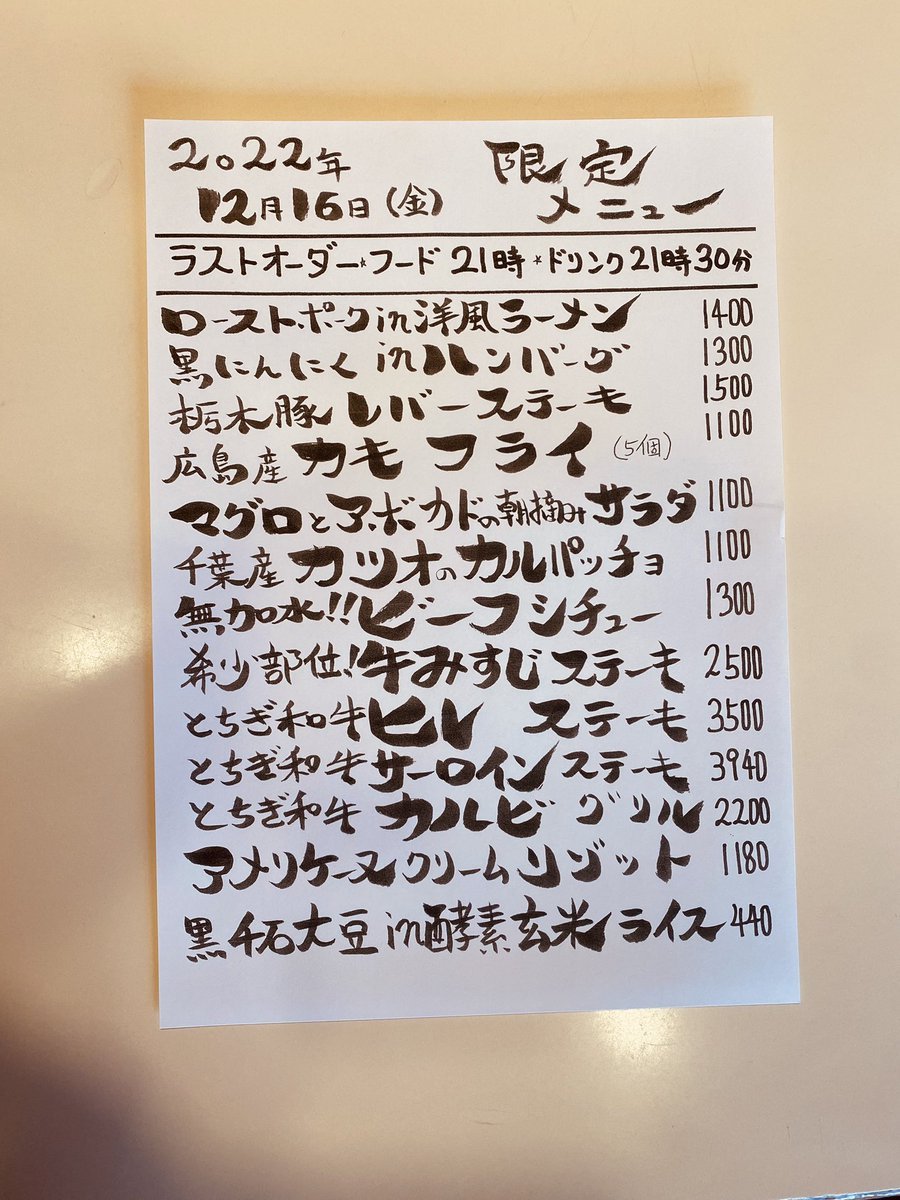 2022年
12月16日(金)
限定
メニュー
ラストオーダー*フード21時*ドリンク21時30分
ローストポークin洋風ラーメン 1400
黒にんにくinハンバーグ 1300
栃木豚 レバーステーキ 1500
広島産 カキフライ(5個) 1100
マグロとアボカドの朝摘みサラダ 1100
千葉産 カツオのカルパッチョ 1100
無加水!!ビーフシチュー 1300
希少部位!牛みすじステーキ 2500
とちぎ和牛ヒレ ステーキ 3500
とちぎ和牛サーロインステーキ 3940
とちぎ和牛 カルビ グリル 2200
アメリケーヌクリームリゾット 1180
黒千石大豆in酵素玄米ライス 440